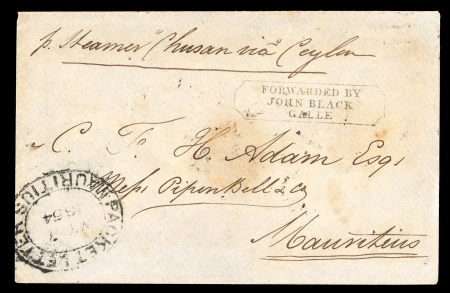 p. Steamer "Chusan via" Ceylon
FORWARDED BY
JOHN BLACK
GALLE
C. F. H. Adam Esq.
Mess Pipon Bell & Co
Mauritius
PACKET LETTER MAURITIUS
1854